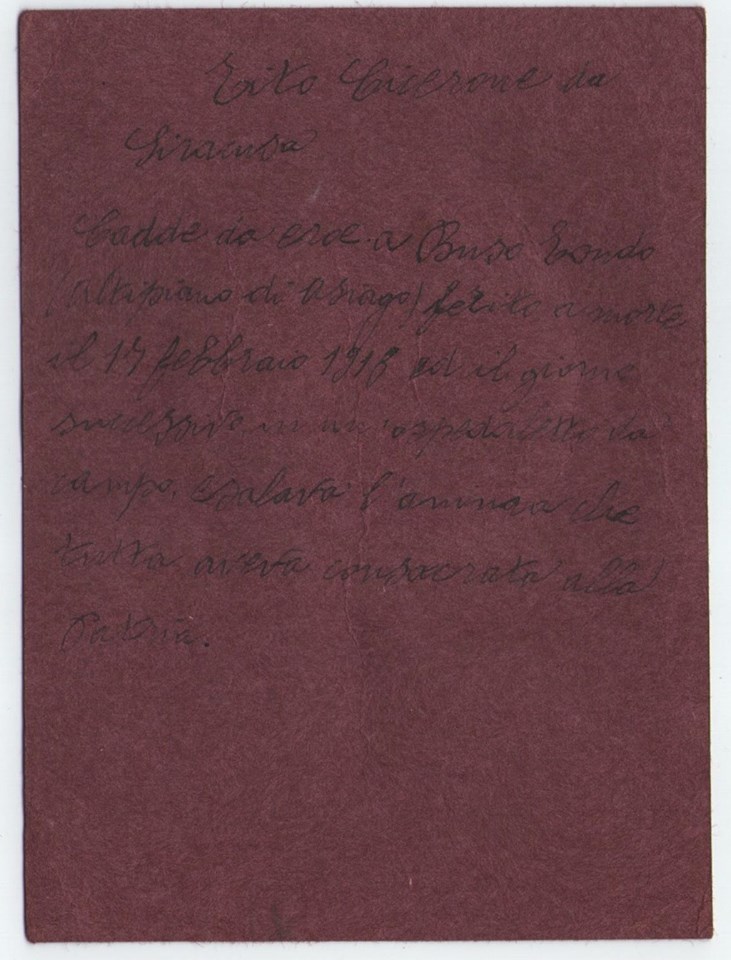 Tito Cicerone da
Siracusa
Cadde da eroe a Buso Tondo
(Altipiano di Asiago) ferito a morte
il 17 febbraio 1918 ed il giorno
successivo in un ospedaletto da
campo, esalava l'anima che
tutta aveva consacrata alla
Patria.